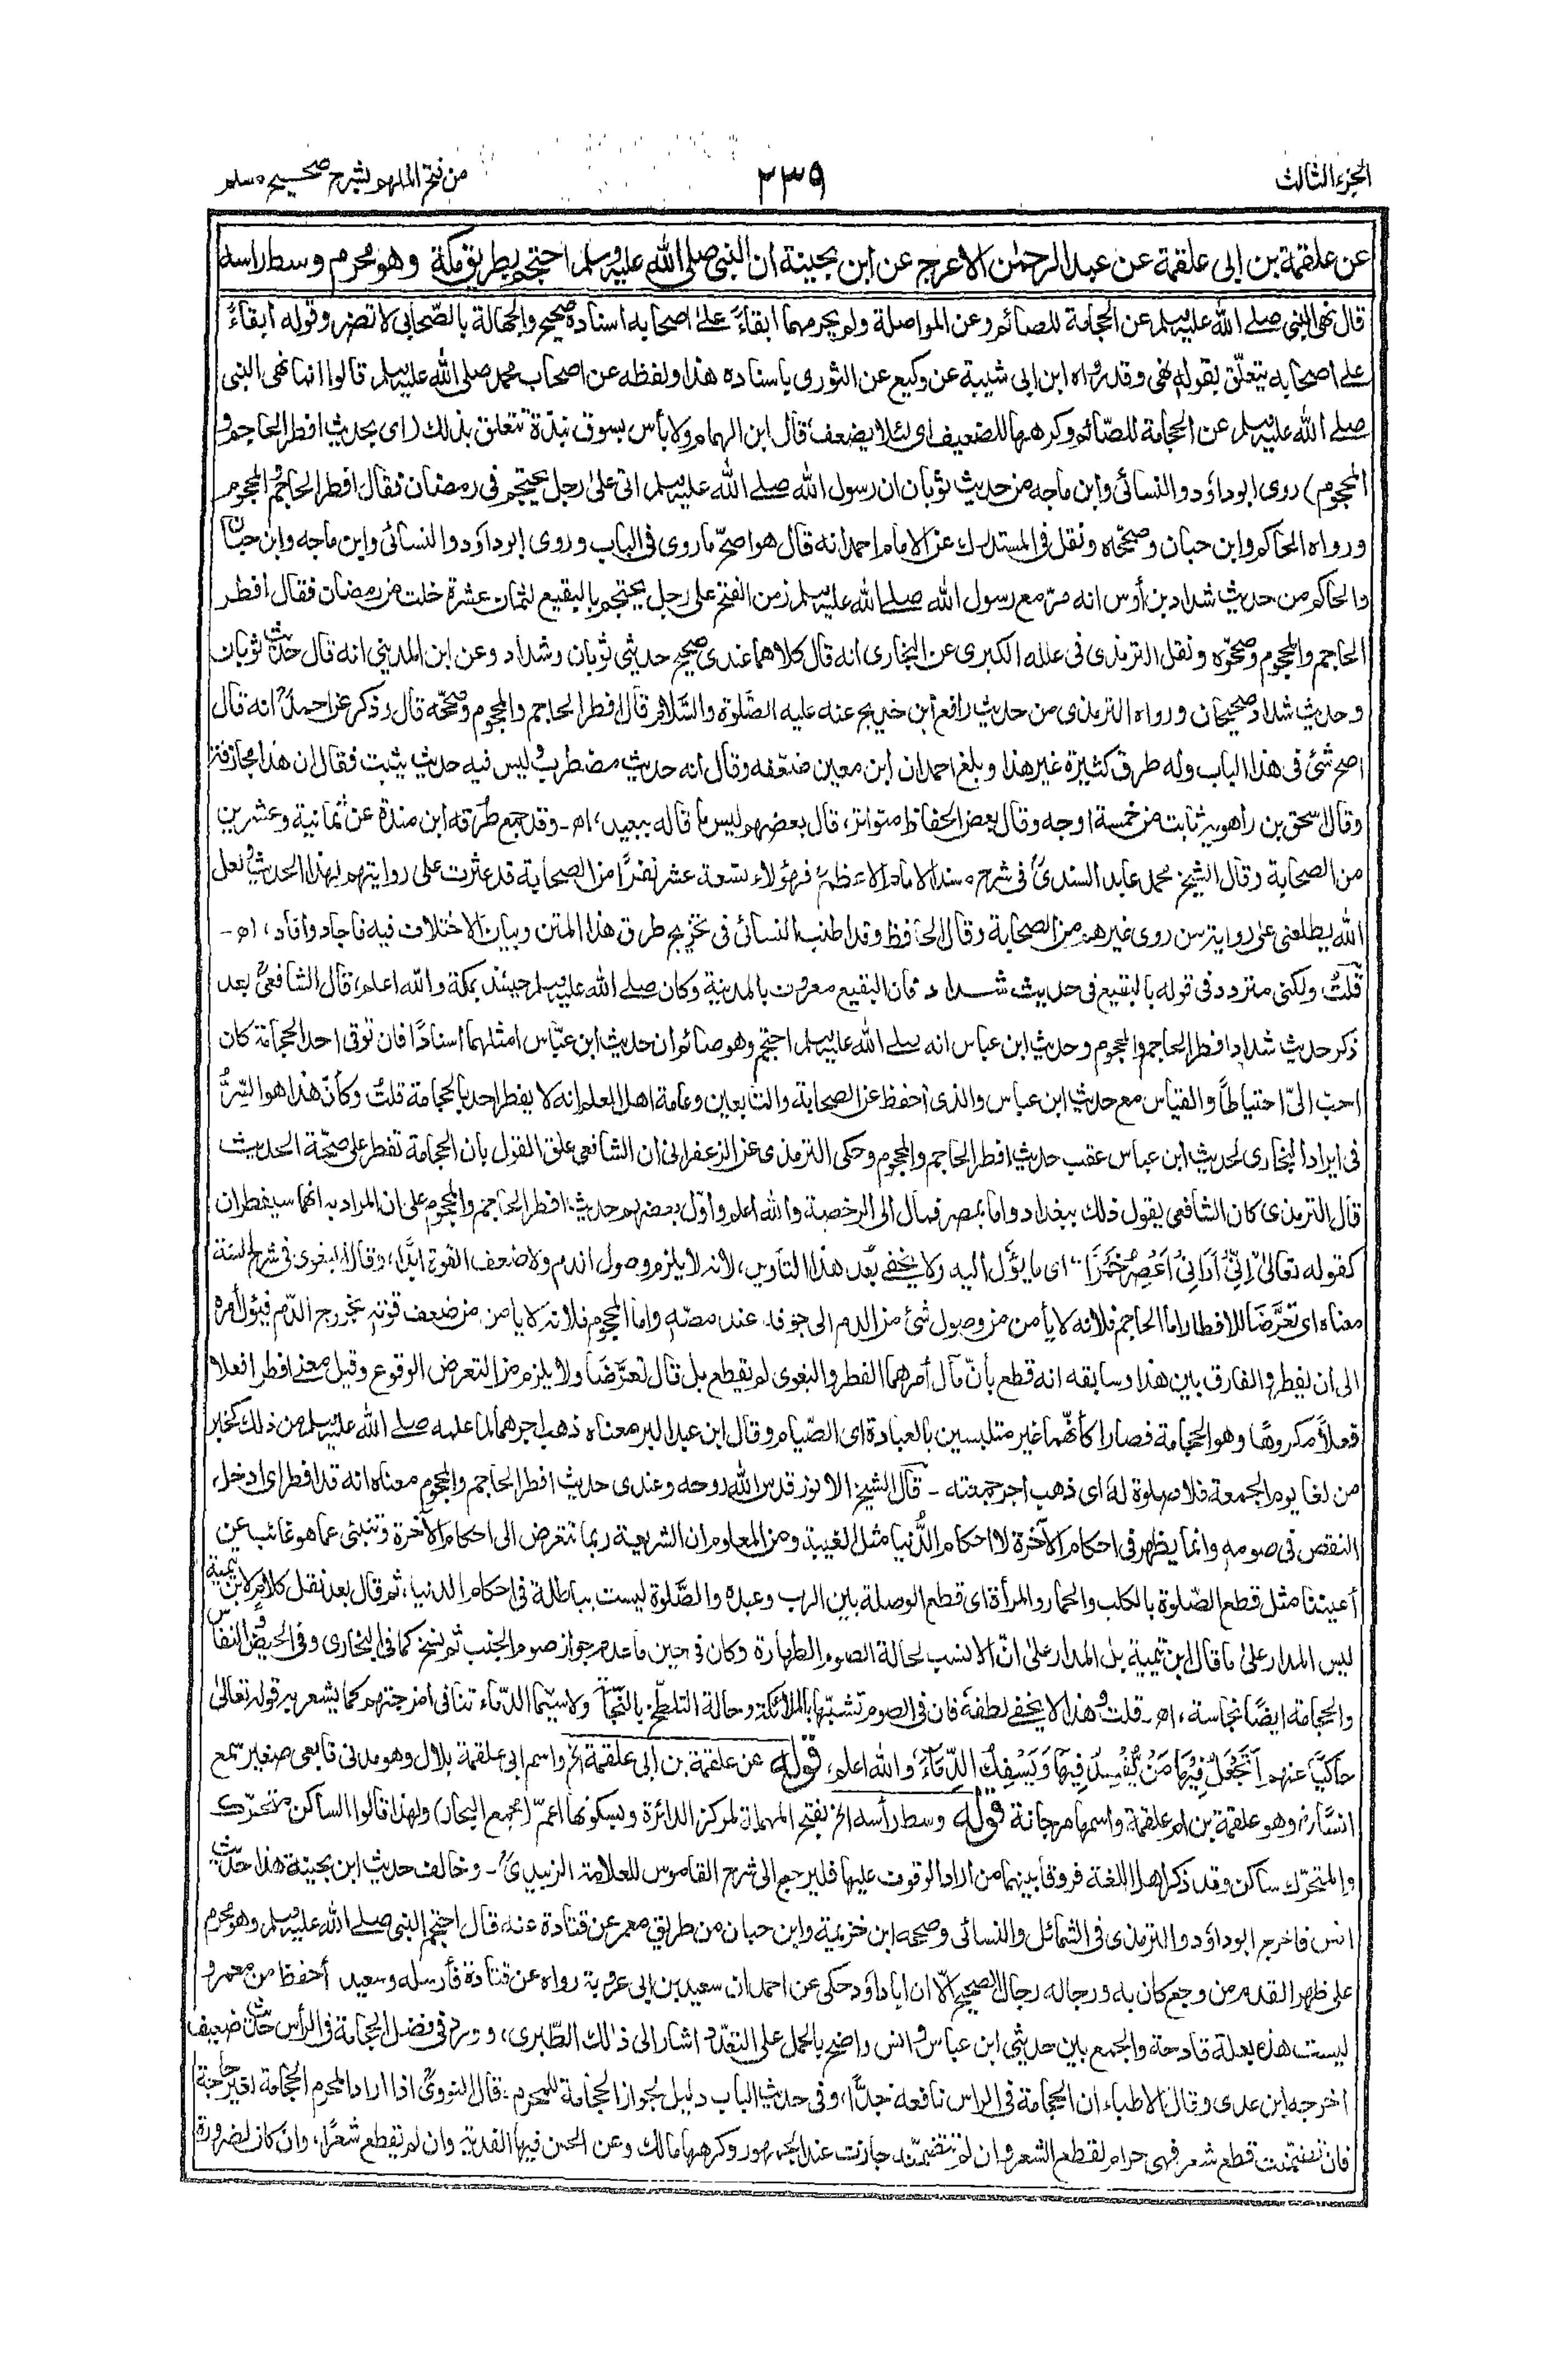 الجزء الثالث
٢٣٩
من فتح الملهم بشرح صحيح مسلم
عن علقمة بن ابى علقمة عن عبد الرحمٰن الاعرج عن ابن بحينة ان النبى صلى الله عليه وسلم احتجم بطريق مكة وهو محرم وسط راسه
قال نهى النبى صلے الله عليه وسلم عن الحجامة للصائم وعن المواصلة ولم يحرمهما ابقاءً علىٰ اصحابه اسناده صحيح والجهالة بالصّحابى لا تضر وقوله ابقاءً
علے اصحابه يتعلّق بقوله نهى وقد رواه ابن ابى شيبة عن وكيع عن الثورى باسناده هذا ولفظه عن اصحاب محمد صلى الله عليه وسلم قالوا انما نهى النبى
صلے الله عليه وسلم عن الحجامة للصّائم وكرهها للضعيف اى لئلا يضعف، قال ابن الهمام ولا بأس بسوق نبذة تتعلق بذلك (اى بحديث افطر الحاجم و
المحجوم) روى ابو داؤد والنسائى وابن ماجه من حديث ثوبان ان رسول الله صلے الله عليه وسلم اتى علىٰ رجل يحتجم فى رمضان فقال افطر الحاجم والمحجوم
ورواه الحاكم وابن حبان وصححاه ونقل فى المستدرك عن الامام احمد انه قال هو اصحّ ما روى فى الباب وروى ابو داؤد والنسائى وابن ماجه وابن حبان
والحاكم من حديث شداد بن أوس انه مرّ مع رسول الله صلے الله عليه وسلم زمن الفتح على رجل يحتجم بالبقيع لثمان عشرة خلت من رمضان فقال افطر
الحاجم والمحجوم وصححوه ونقل الترمذى فى علله الكبرى عن البخارى انه قال كلاهما عندى صحيح حديثى ثوبان وشداد وعن ابن المدينى انه قال حديث ثوبان
وحديث شداد صحيحان ورواه الترمذى من حديث رافع ابن خديج عنه عليه الصّلوة والسّلام قال افطر الحاجم والمحجوم وصححه قال وذكر عن احمدؒ انه قال
اصح شئ فى هذا الباب وله طرق كثيرة غير هذا وبلغ احمد ان ابن معين ضعّفه وقال انه حديث مضطرب وليس فيه حديث يثبت فقال ان هذا مجازفة
وقال اسحق بن راهويه ثابت من خمسة اوجه وقال بعض الحفاظ متواتر، قال بعضهم ليس ما قاله ببعيد، اه ـ وقد جمع طرقه ابن مندة عن ثمانية وعشرين
من الصحابة وقال الشيخ محمد عابد السندىؒ فى شرح مسند الامام الاعظمؒ فهؤلاء تسعة عشر نفرًا من الصحابة قد عثرت على روايتهم لهذا الحديث ولعل
الله يطلعنى على رواية من روى غيرهم من الصحابة وقال الحافظ وقد اطنب النسائى فى تخريج طرق هذا المتن وبيان الاختلاف فيه فاجاد وأفاد، اه ـ
قلتُ ولكنى متردد فى قوله بالبقيع فى حديث شداد فان البقيع معروف بالمدينة وكان صلے الله عليه وسلم حينئذ بمكة والله اعلم، قال الشافعىؒ بعد
ذكر حديث شداد افطر الحاجم والمحجوم وحديث ابن عباس انه صلے الله عليه وسلم احتجم وهو صائم ان حديث ابن عبّاس امثلهما اسنادًا فان توقى احد الحجامة كان
احبّ الىّ احتياطًا والقياس مع حديث ابن عباس والذى احفظ عن الصحابة والتابعين وعامة اهل العلم انه لا يفطر احد بالحجامة قلتُ وكأنّ هذا هو السِّرُّ
فى ايراد البخارى لحديث ابن عباس عقب حديث افطر الحاجم والمحجوم وحكى الترمذى عن الزعفرانى ان الشافعى علق القول بان الحجامة تفطر على صحّة الحديث
قال الترمذى كان الشافعى يقول ذلك ببغداد واما بمصر فمال الى الرخصة والله اعلم وأوّل بعضهم حديث: افطر الحاجم والمحجوم على ان المراد به انهما سيفطران
كقوله تعالىٰ اِنِّىْ اَرَانِىْ اَعْصِرُ خَمْرًا" اى ما يؤل اليه ولا يخفے بُعد هذا التأويل، لانه لا يلزم وصول الدم ولا ضعف القوة ابدًا، وقال البغوى فى شرح السنة
معناه اى تعرَّضَا للافطار اما الحاجم فلانه لا يأمن من وصول شئ من الدم الى جوفه عند مصّه واما المحجوم فلانه لا يأمن من ضعف قوته بخروج الدّم فيؤل أمره
الى أن يفطر والفارق بين هذا وسابقه انه قطع بأنّ مآل أمرهما الفطر والبغوى لم يقطع بل قال تعرّضَا ولا يلزم من التعرض الوقوع وقيل معنے افطر افعلا
فعلاً مكروهًا وهو الحجامة فصارا كأنّهما غير متلبسين بالعبادة اى الصّيام وقال ابن عبد البر معناه ذهب اجرهما لما علمه صلے الله عليه وسلم من ذلك كخبر
من لغا يوم الجمعة فلا صلوة له اى ذهب اجر جمعته ـ قال الشيخ الانور قدس الله روحه وعندى حديث افطر الحاجم والمحجوم معناه انه قد افطر اى ادخل
النقص فى صومه وانما يظهر فى احكام الآخرة لا احكام الدُّنيا مثل الغيبة ومن المعلوم ان الشريعة ربما تتعرض الى احكام الآخرة وتنبئ عما هو غائب عن
أعيننا مثل قطع الصّلوة بالكلب والحمار والمرأة اى قطع الوصلة بين الرب وعبده والصَّلوة ليست بباطلة فى احكام الدنيا، ثم قال بعد نقل كلامٍ لابن تيمية
ليس المدار علىٰ ما قال ابن تيمية بل المدار علىٰ انّ الانسب لحالة الصوم الطهارة وكان فى حين ما عدم جواز صوم الجنب ثم نسخ كما فى البخارى وفى الحيض والنفاس
والحجامة ايضًا نجاسة، اه ـ قلتُ وهذا لا يخفے لطفهٗ فان فى الصوم تشبّها بالملائكة وحالة التلطّخ بالنّجاسة ولا سيّما الدّماء تنافى امزجتهم كما يشعر به قوله تعالىٰ
حاكيًا عنهم اَتَجْعَلُ فِيْهَا مَنْ يُّفْسِدُ فِيْهَا وَيَسْفِكُ الدِّمَآءَ، والله اعلم، قوله عن علقمة بن ابى علقمة الخ واسم ابى علقمة بلال وهو مدنى تابعى صغير سمع
انسًا، وهو علقمة بن ام علقمة، واسمها مرجانة قوله وسط رأسه الخ بفتح المهملة لمركز الدائرة وبسكونها اعمّ (مجمع البحار) ولهذا قالوا الساكن متحرّك
والمتحرّك ساكن وقد ذكر اهل اللغة فروقا بينهما من اراد الوقوف عليها فليرجع الى شرح القاموس للعلامة الزبيدىؒ ـ وخالف حديث ابن بحينة هذا حديث
انس فاخرج ابو داؤد والترمذى فى الشمائل والنسائى وصححه ابن خزيمة وابن حبان من طريق معمر عن قتادة عنه، قال احتجم النبى صلے الله عليه وسلم وهو محرم
على ظهر القدم من وجع كان به ورجاله رجال الصحيح الّا ان ابا داؤد حكى عن احمد ان سعيد بن ابى عروبة رواه عن قتادة فأرسله وسعيد أحفظ من معمر و
ليست هذه بعلة قادحة والجمع بين حديثى ابن عباس وانس واضح بالحمل على التعدّد اشار الى ذٰلك الطّبرى، وورد فى فضل الحجامة فى الرأس حديث ضعيف
اخرجه ابن عدى وقال الاطباء ان الحجامة فى الراس نافعه جدًّا، وفى حديث الباب دليل لجواز الحجامة للمحرم، قال النووىؒ اذا اراد المحرم الحجامة لغير حاجة
فان تضمّنت قطع شعر فهى حرام لقطع الشعر وان لم تتضمّنه جازت عند الجمهور وكرهها مالك وعن الحسن فيها الفدية وان لم يقطع شعرًا، وان كان لضرورة